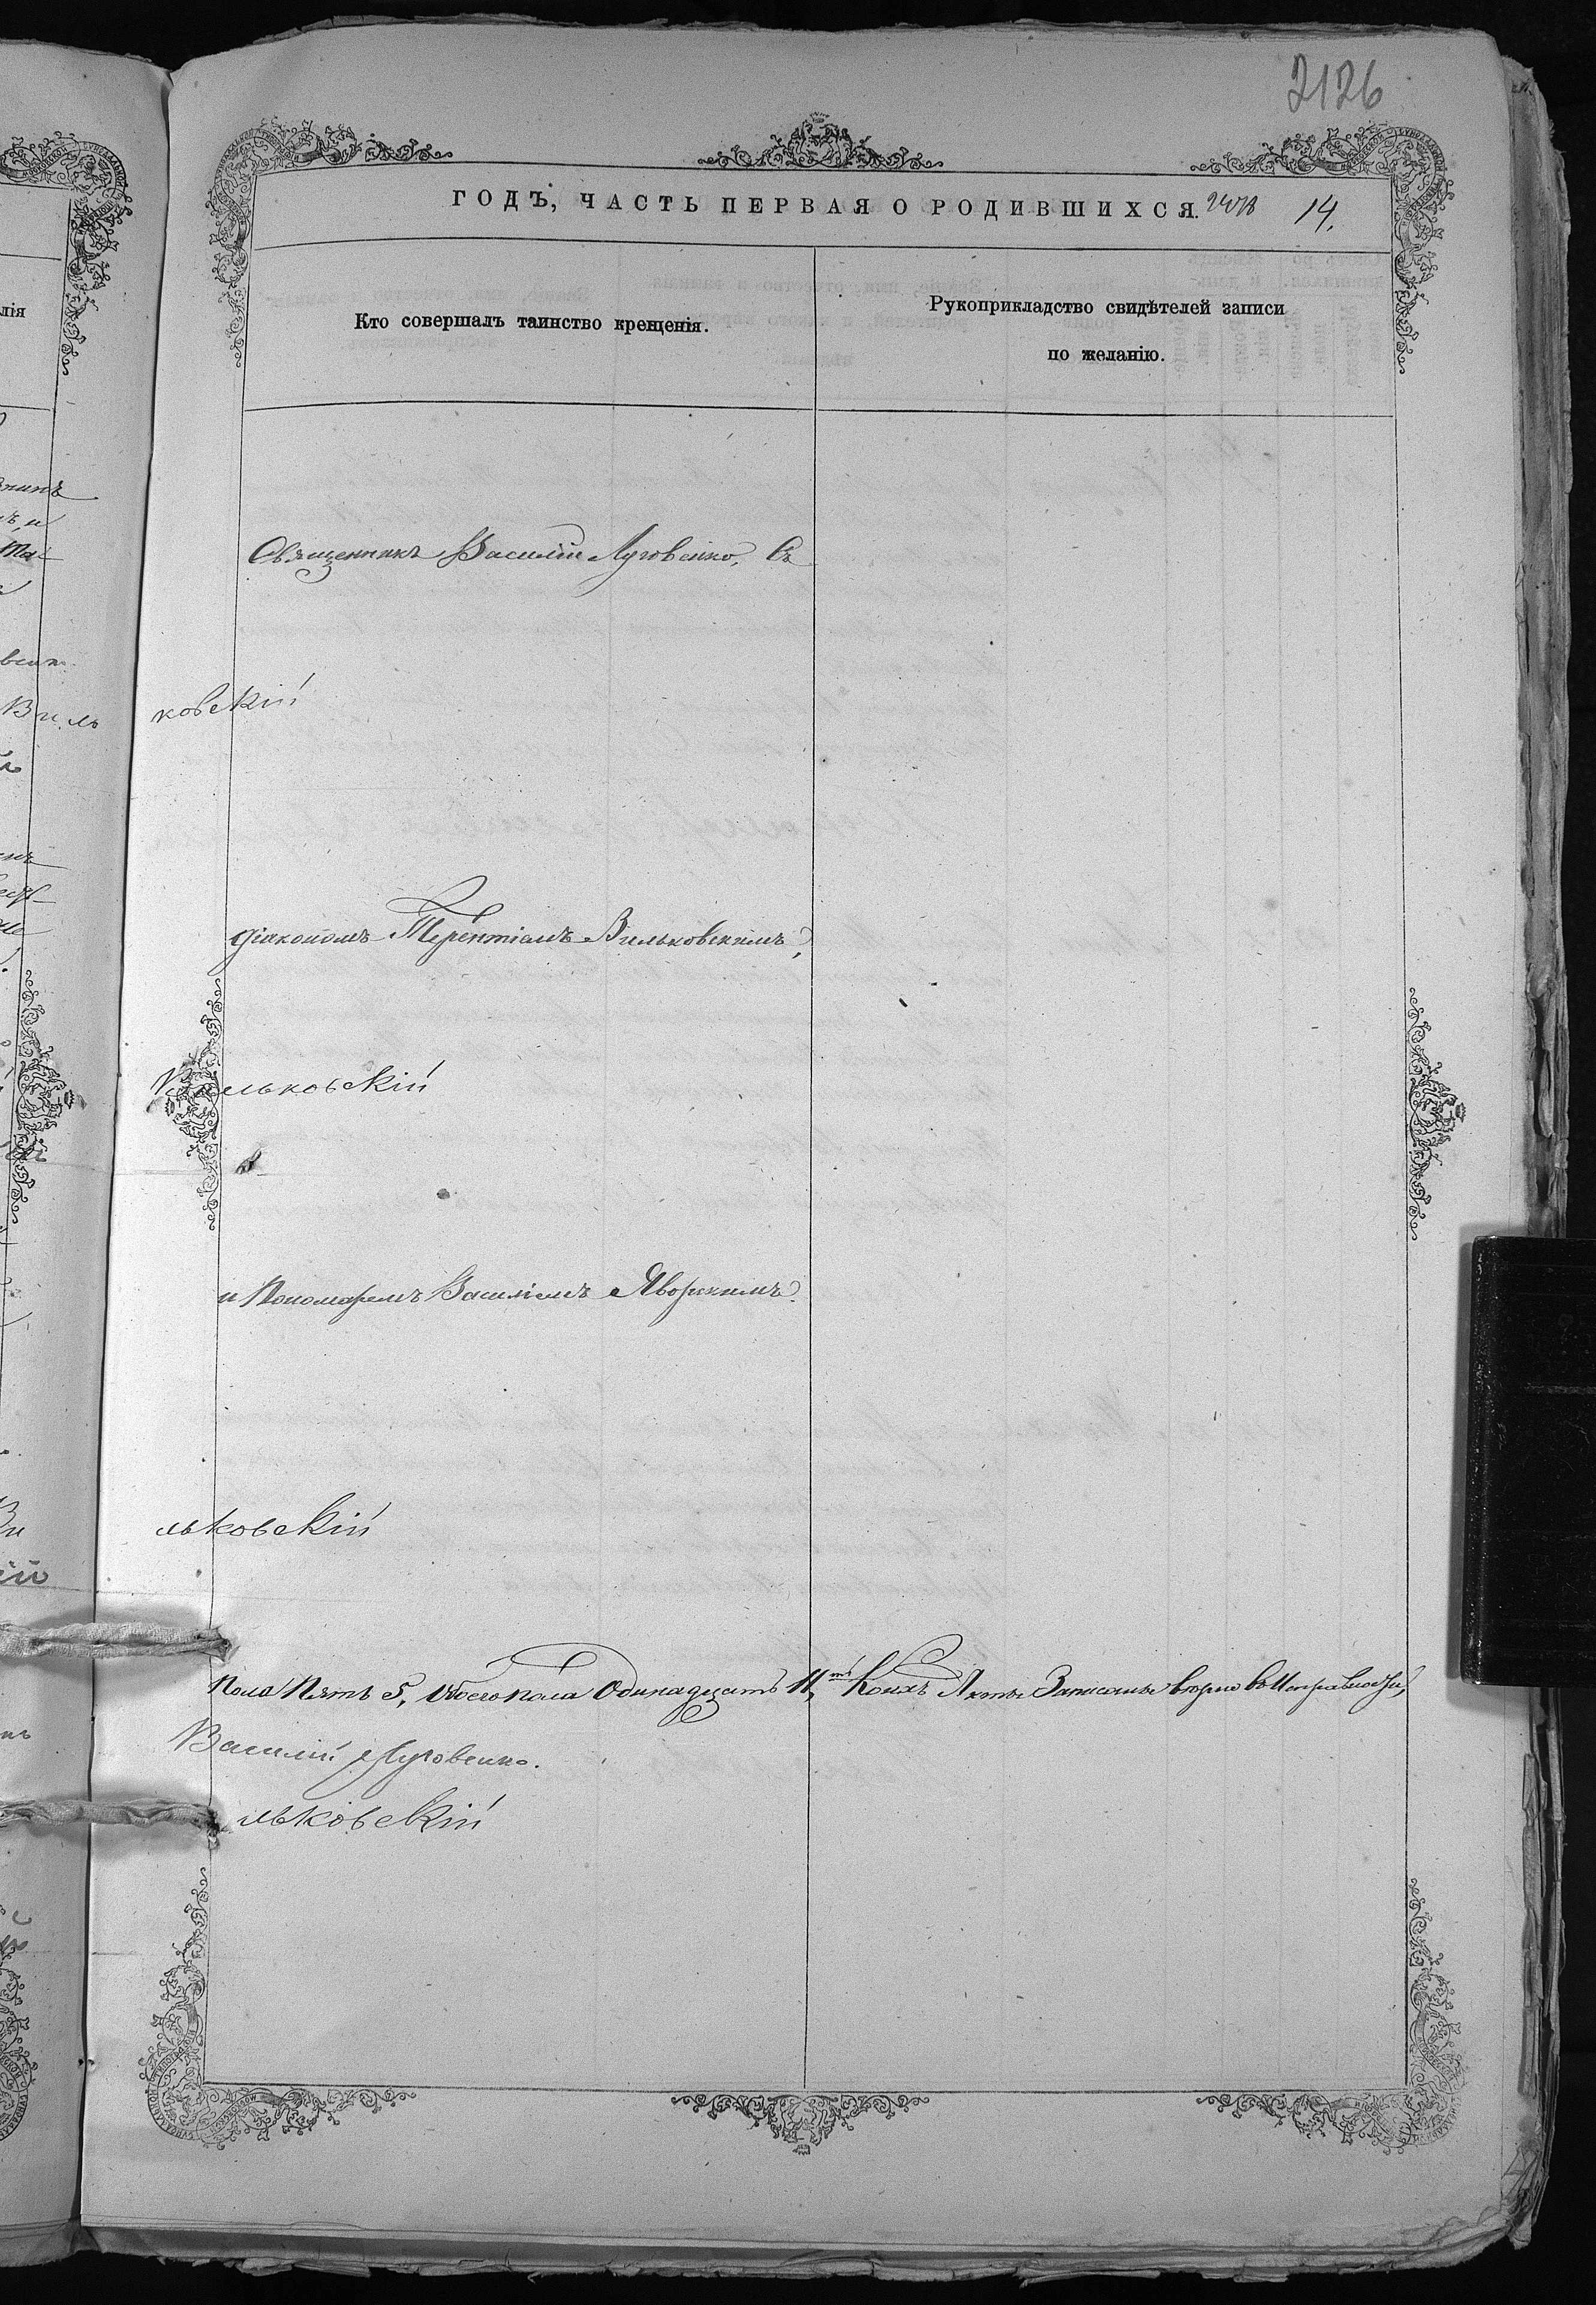 2126
ГОДЪ, ЧАСТЬ ПЕРВАЯ О РОДИВШИХСЯ.
14.
Кто совершалъ таинство крещенія.
Рукоприкладство свидѣтелей записи
по желанію.
Священникъ Василій Луговенко, Съ
ковскій
діакономъ Терентіемъ Вильковскимъ,
Вильковскій
и Пономаремъ Василіемъ Яворскимъ
льковскій
пола Пять 5, Обоего пола Одинадцать 11, Коихъ Акты Записаны верно въ Исправности,
Василій Луговенко.
льковскій